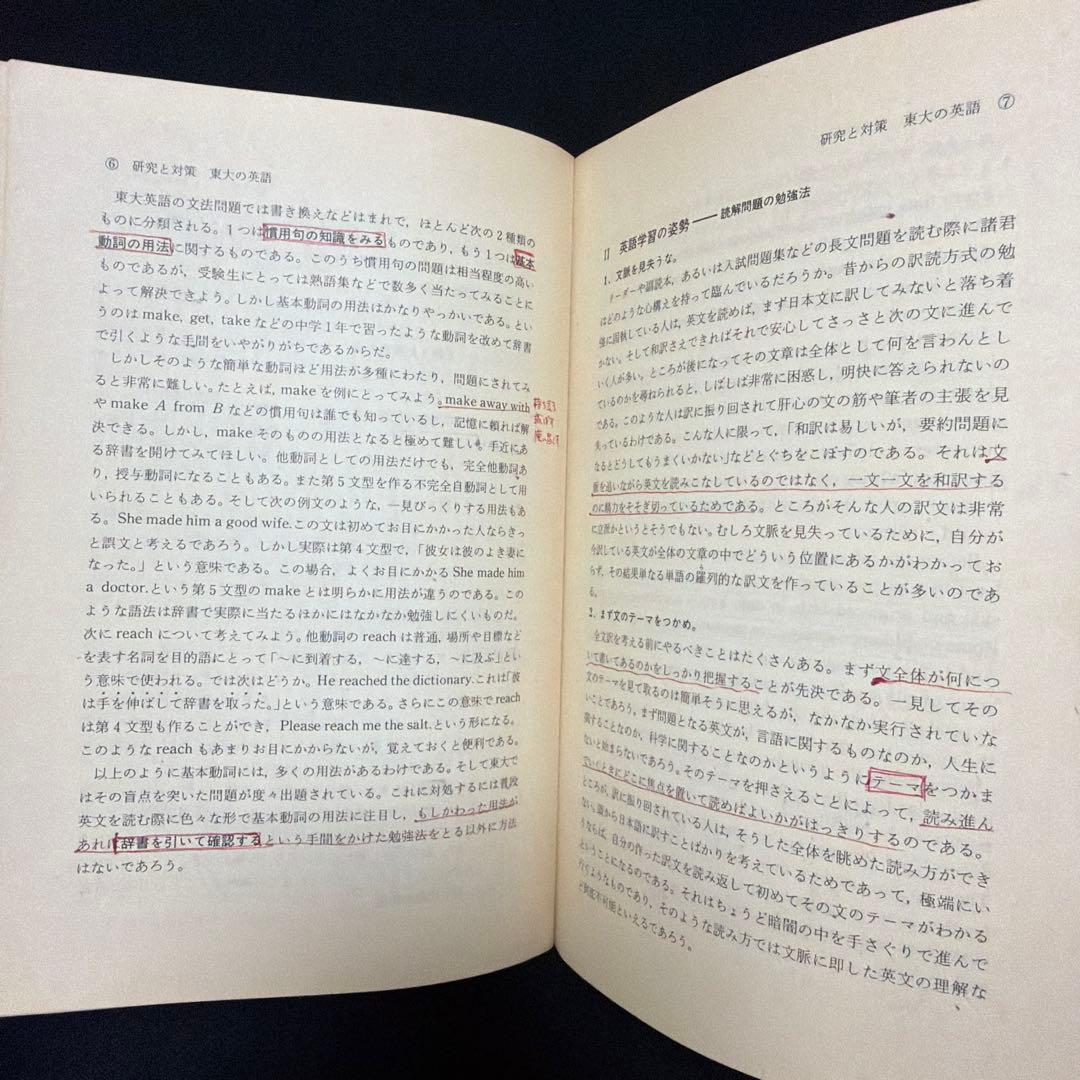 ⑥ 研究と対策 東大の英語
東大英語の文法問題では書き換えなどはまれで，ほとんど次の2種類の
ものに分類される。1つは慣用句の知識をみるものであり，もう1つは基本
動詞の用法に関するものである。このうち慣用句の問題は相当程度の高い
ものであるが，受験生にとっては熟語集などで数多く当たってみることに
よって解決できよう。しかし基本動詞の用法はかなりやっかいである。とい
うのは make, get, take などの中学1年で習ったような動詞を改めて辞書
で引くような手間をいやがりがちであるからだ。
しかしそのような簡単な動詞ほど用法が多種にわたり，問題にされてみ
ると非常に難しい。たとえば，make を例にとってみよう。make away with
や make A from B などの慣用句は誰でも知っているし，記憶に頼れば解
決できる。しかし，make そのものの用法となると極めて難しい。手近にあ
る辞書を開けてみてほしい。他動詞としての用法だけでも，完全他動詞あ
り，授与動詞になることもある。また第5文型を作る不完全自動詞として用
いられることもある。そして次の例文のような，一見びっくりする用法もあ
る。She made him a good wife. この文は初めてお目にかかった人ならきっ
と誤文と考えるであろう。しかし実際は第4文型で，「彼女は彼のよき妻に
なった。」という意味である。この場合，よくお目にかかる She made him
a doctor. という第5文型の make とは明らかに用法が違うのである。この
ような語法は辞書で実際に当たるほかにはなかなか勉強しにくいものだ。
次に reach について考えてみよう。他動詞の reach は普通，場所や目標など
を表す名詞を目的語にとって「〜に到着する，〜に達する，〜に及ぶ」とい
う意味で使われる。では次はどうか。He reached the dictionary. これは「彼
は手を伸ばして辞書を取った。」という意味である。さらにこの意味で reach
は第4文型も作ることができ，Please reach me the salt. という形になる。
このような reach もあまりお目にかからないが，覚えておくと便利である。
以上のように基本動詞には，多くの用法があるわけである。そして東大で
はその盲点を突いた問題が度々出題されている。これに対処するには普段
英文を読む際に色々な形で基本動詞の用法に注目し，もしかわった用法が
あれば辞書を引いて確認するという手間をかけた勉強法をとる以外に方法
はないであろう。
研究と対策 東大の英語 ⑦
II 英語学習の姿勢――読解問題の勉強法
1. 文脈を見失うな。
リーダーや副読本，あるいは入試問題集などの長文問題を読む際に諸君
はどのような構えを持って臨んでいるだろうか。昔からの訳読方式の勉
強に固執している人は，英文を読めば，まず日本文に訳してみないと落ち着
かない。そして和訳さえできればそれで安心してさっさと次の文に進んで
いく人が多い。ところが後になってその文章は全体として何を言わんとし
ているのかを尋ねられると，しばしば非常に困惑し，明快に答えられないの
である。このような人は訳に振り回されて肝心の文の筋や筆者の主張を見
失っているわけである。こんな人に限って，「和訳は易しいが，要約問題に
なるとどうしてもうまくいかない」などとぐちをこぼすのである。それは文
脈を追いながら英文を読みこなしているのではなく，一文一文を和訳する
のに精力をそそぎ切っているためである。ところがそんな人の訳文は非常
に立派かというとそうでもない。むしろ文脈を見失っているために，自分が
今訳している英文が全体の文章の中でどういう位置にあるかがわかってお
らず，その結果単なる単語の羅列的な訳文を作っていることが多いのであ
る。
2. まず文のテーマをつかめ。
全文訳を考える前にやるべきことはたくさんある。まず文全体が何につ
いて書いてあるのかをしっかり把握することが先決である。一見してその
文のテーマを見て取るのは簡単そうに思えるが，なかなか実行されていな
いことであろう。まず問題となる英文が，言語に関するものなのか，人生に
関することなのか，科学に関することなのかというようにテーマをつかま
ないと始まらないであろう。そのテーマを押さえることによって，読み進ん
でいくときにどこに焦点を置いて読めばよいかがはっきりするのである。
ところが，訳に振り回されている人は，そうした全体を眺めた読み方ができ
ない。頭から日本語に訳すことばかりを考えているためであって，極端にい
うならば，自分の作った訳文を読み返して初めてその文のテーマがわかる
ということになるのである。それはちょうど暗闇の中を手さぐりで進んで
行くようなものであり，そのような読み方では文脈に即した英文の理解な
ど到底不可能といえるであろう。